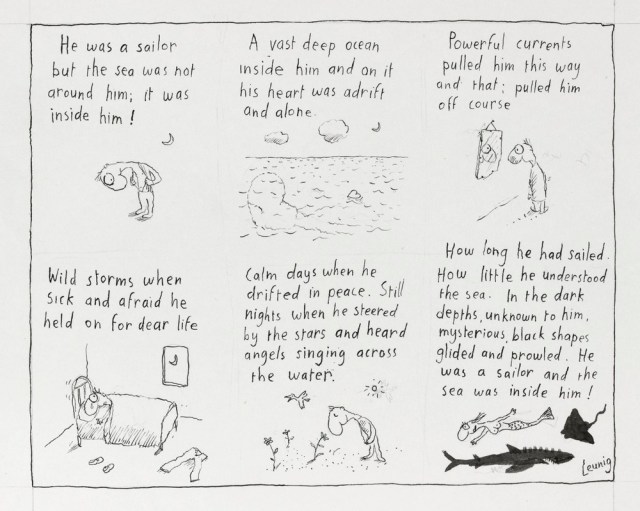 He was a sailor
but the sea was not
around him; it was
inside him!
A vast deep ocean
inside him and on it
his heart was adrift
and alone.
Powerful currents
pulled him this way
and that; pulled him
off course
Wild storms when
sick and afraid he
held on for dear life
Calm days when he
drifted in peace. Still
nights when he steered
by the stars and heard
angels singing across
the water.
How long he had sailed.
How little he understood
the sea. In the dark
depths, unknown to him,
mysterious, black shapes
glided and prowled. He
was a sailor and the
sea was inside him!
Leunig